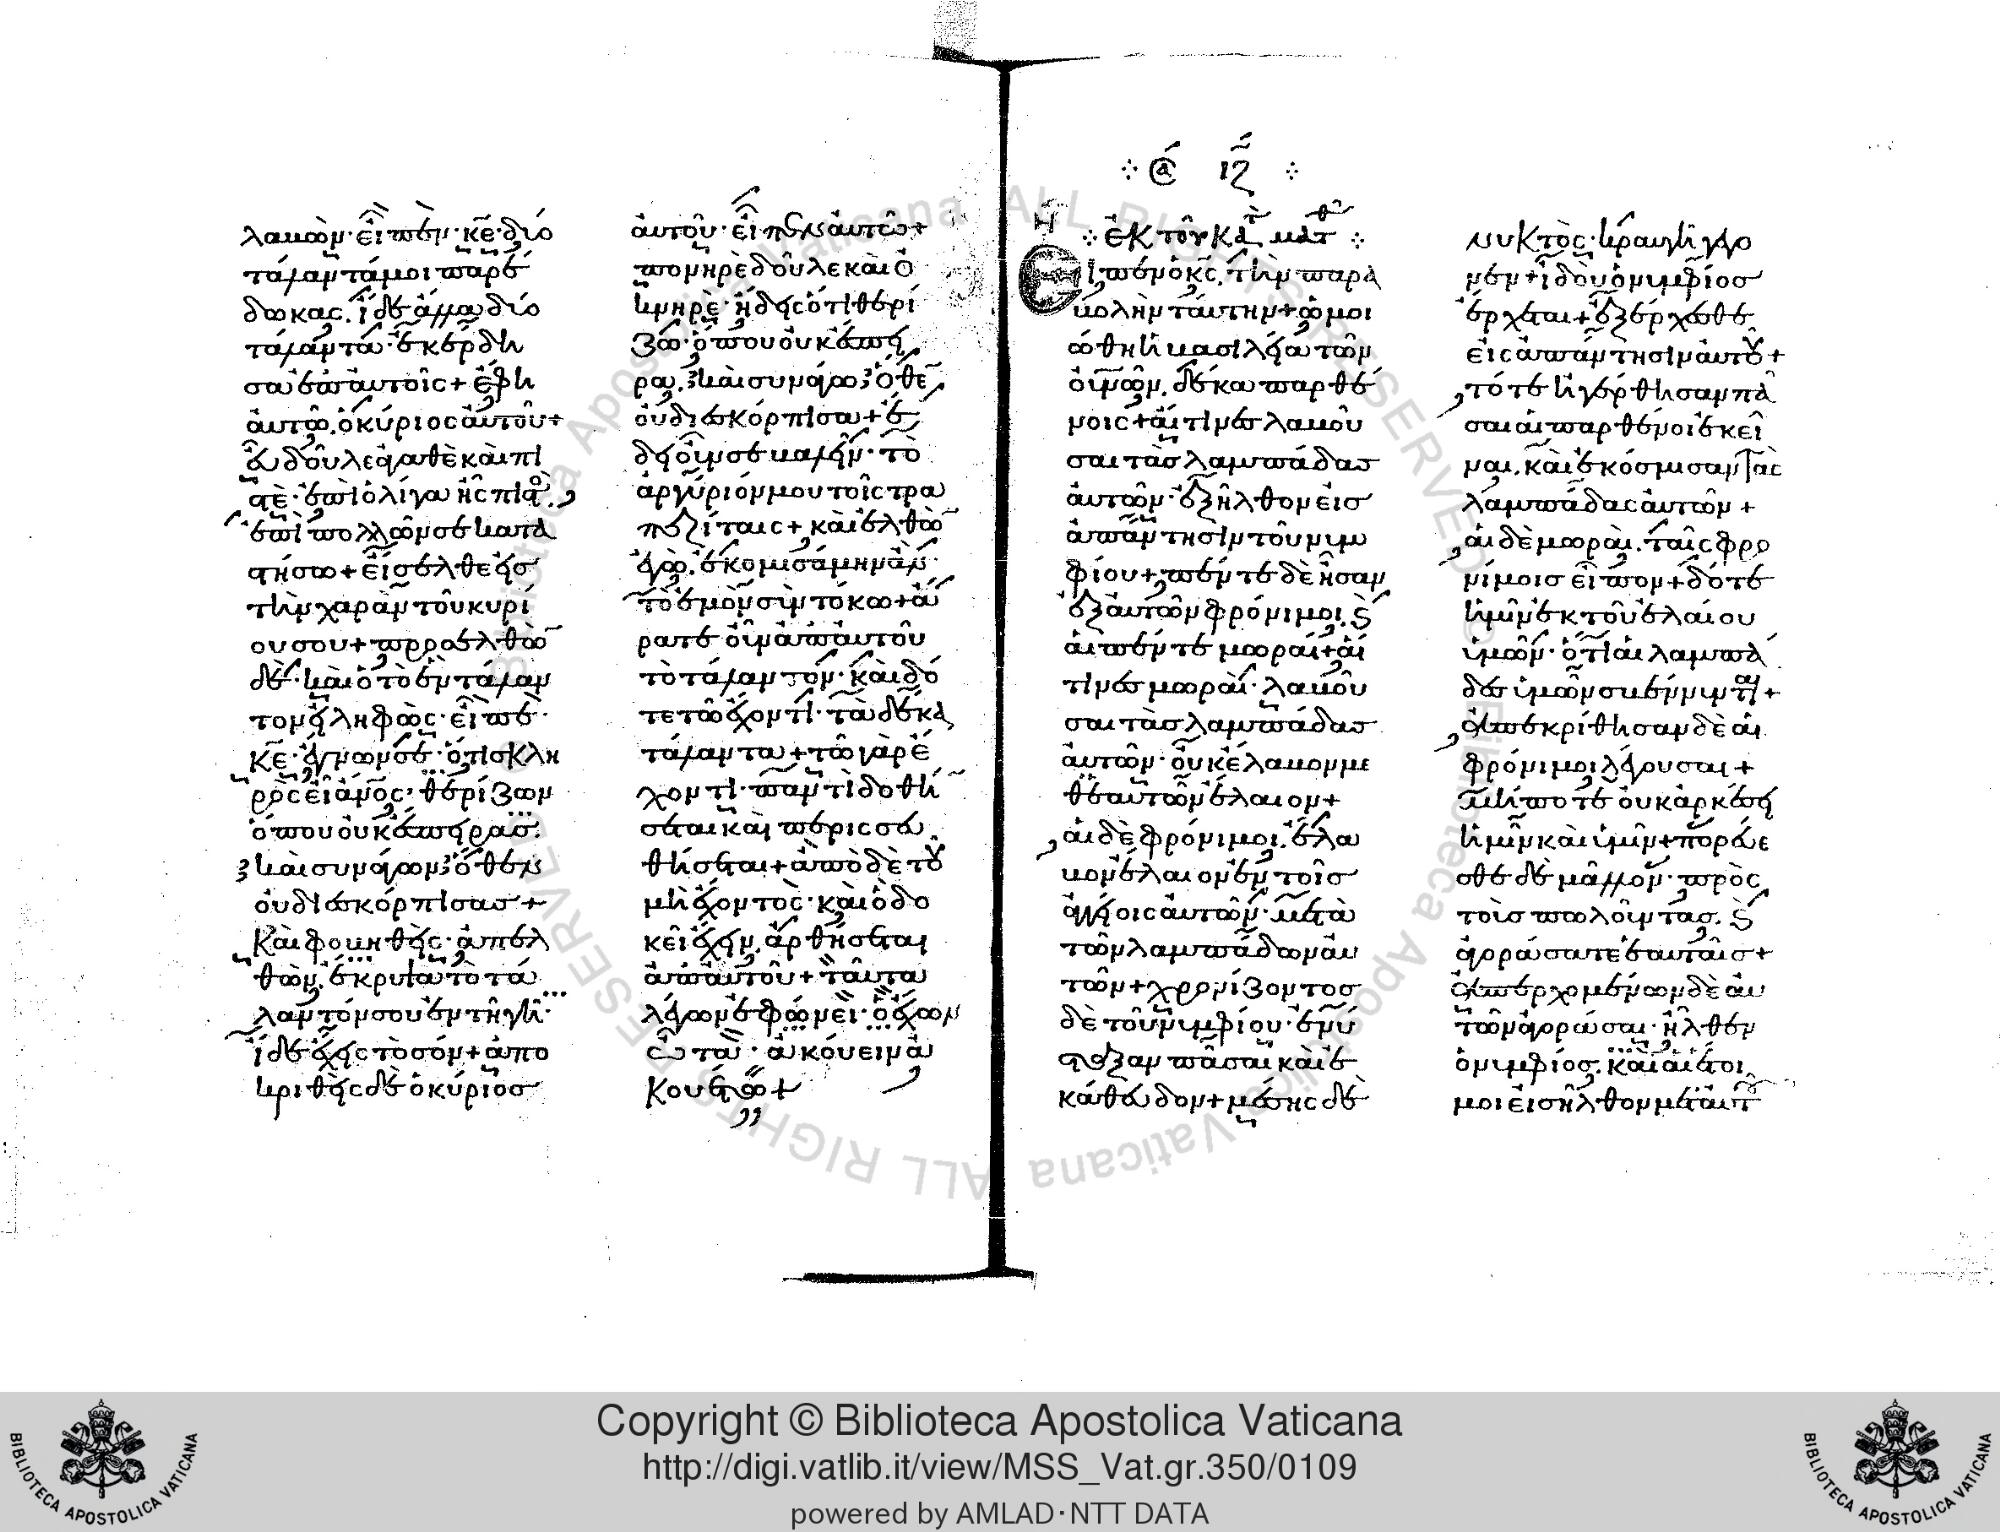 λαβὼν· εἶπεν· κ̅ε̅· δύο
τάλαντά μοι παρέ
δωκας. ἴδε ἄλλα δύο
τάλαντα ἐκέρδη
σα ἐπ' αὐτοῖς + ἔφη
αὐτῶ. ὁ κύριος αὐτοῦ +
εὖ δοῦλε ἀγαθὲ καὶ πι
στὲ· ἐπὶ ὀλίγα ἦς πιστο.
ἐπὶ πολλῶν σε κατα
στήσω + εἴσελθε εἰς
τὴν χαρὰν τοῦ κυρί
ου σου + προσελθὼ
δὲ· καὶ ὁ τὸ ἓν τάλαν
τον εἰληφὼς· εἶπε·
κ̅ε̅· ἔγνων σε· ὅτι σκλη
ρὸς εἶ ἄν̅ο̅ς· θερίζων
ὅπου οὐκ ἔσπειρας.
καὶ συνάγων ὅθεν
οὐ διεσκόρπισας +
Καὶ φοβηθεὶς· ἀπελ
θὼν. ἔκρυψα τὸ τά
λαντόν σου ἐν τῆ γῆ·
ἴδε ἔχεις τὸ σόν + ἀπο
κριθεὶς δὲ ὁ κύριος
αὐτοῦ· εἶπεν αὐτῶ +
πονηρὲ δοῦλε καὶ ὀ
κνηρὲ· ἤδεις ὅτι θερί
ζω· ὅπου οὐκ ἔσπει
ρα. καὶ συνάγω ὅθε
οὐ διεσκόρπισα + ἔ
δει οὖν σε βαλεῖν· τὸ
ἀργύριόν μου τοῖς τρα
πεζίταις + καὶ ἐλθὼ
ἐγὼ. ἐκομισάμην ἂν·
τὸ ἐμὸν σὺν τόκω + ἄ
ρατε οὖν ἀπ' αὐτοῦ
τὸ τάλαντον· καὶ δό
τε τῶ ἔχοντι· τὰ δέκα
τάλαντα + τῶ γὰρ ἔ
χοντι· παντὶ δοθή
σεται καὶ περισσευ
θήσεται + ἀπὸ δὲ τοῦ
μὴ ἔχοντος· καὶ ὃ δο
κεῖ ἔχειν. ἀρθήσεται
ἀπ' αὐτοῦ + ταῦτα
λέγων ἐφώνει· ὁ ἔχων
ὦτα· ἀκούειν ἀ
κουέτω +
ἐκ τοῦ κατ ματθ
Εἶπεν ὁ κ̅ς̅. τὴν παρα
βολὴν ταύτην + ὡμοι
ώθη ἡ βασιλεία τῶν
οὐνῶν. δέκα παρθέ
νοις + αἵτινες λαβοῦ
σαι τὰς λαμπάδας
αὐτῶν· ἐξῆλθον εἰς
ἀπάντησιν τοῦ νυμ
φίου + πέντε δὲ ἦσαν
ἐξ αὐτῶν φρόνιμοι. καὶ
αἱ πέντε μωραί + αἵ
τινες μωραὶ· λαβοῦ
σαι τὰς λαμπάδας
αὐτῶν· οὐκ ἔλαβον με
θ' ἑαυτῶν ἔλαιον +
αἱ δὲ φρόνιμοι. ἔλα
βον ἔλαιον ἐν τοῖς
ἀγγείοις αὐτῶν· μετὰ
τῶν λαμπάδων αὐ
τῶν + χρονίζοντος
δὲ τοῦ νυμφίου· ἐνύ
σταξαν πᾶσαι καὶ ἐ
κάθευδον + μέσης δὲ
νυκτὸς· κραυγὴ γέγο
νεν + ἰδοὺ ὁ νυμφίος
ἔρχεται + ἐξέρχεσθε
εἰς ἀπάντησιν αὐτοῦ +
τότε ἠγέρθησαν πᾶ
σαι αἱ παρθένοι ἐκεῖ
ναι. καὶ ἐκόσμησαν τὰς
λαμπάδας αὐτῶν +
αἱ δὲ μωραὶ. ταῖς φρο
νίμοις εἶπον + δότε
ἡμῖν ἐκ τοῦ ἐλαίου
ὑμῶν· ὅτι αἱ λαμπά
δες ἡμῶν σβέννυνται +
ἀπεκρίθησαν δὲ αἱ
φρόνιμοι λέγουσαι +
μήποτε οὐκ ἀρκέσει
ἡμῖν καὶ ὑμῖν + πορεύε
σθε δὲ μᾶλλον· πρὸς
τοὺς πωλοῦντας. καὶ
ἀγοράσατε ἑαυταῖς +
ἀπερχομένων δὲ αὐ
τῶν ἀγοράσαι· ἦλθεν
ὁ νυμφίος. καὶ αἱ ἕτοι
μοι εἰσῆλθον μετ' αὐτ
Copyright © Biblioteca Apostolica Vaticana
http://digi.vatlib.it/view/MSS_Vat.gr.350/0109
powered by AMLAD·NTT DATA
BIBLIOTECA APOSTOLICA VATICANA
BIBLIOTECA APOSTOLICA VATICANA